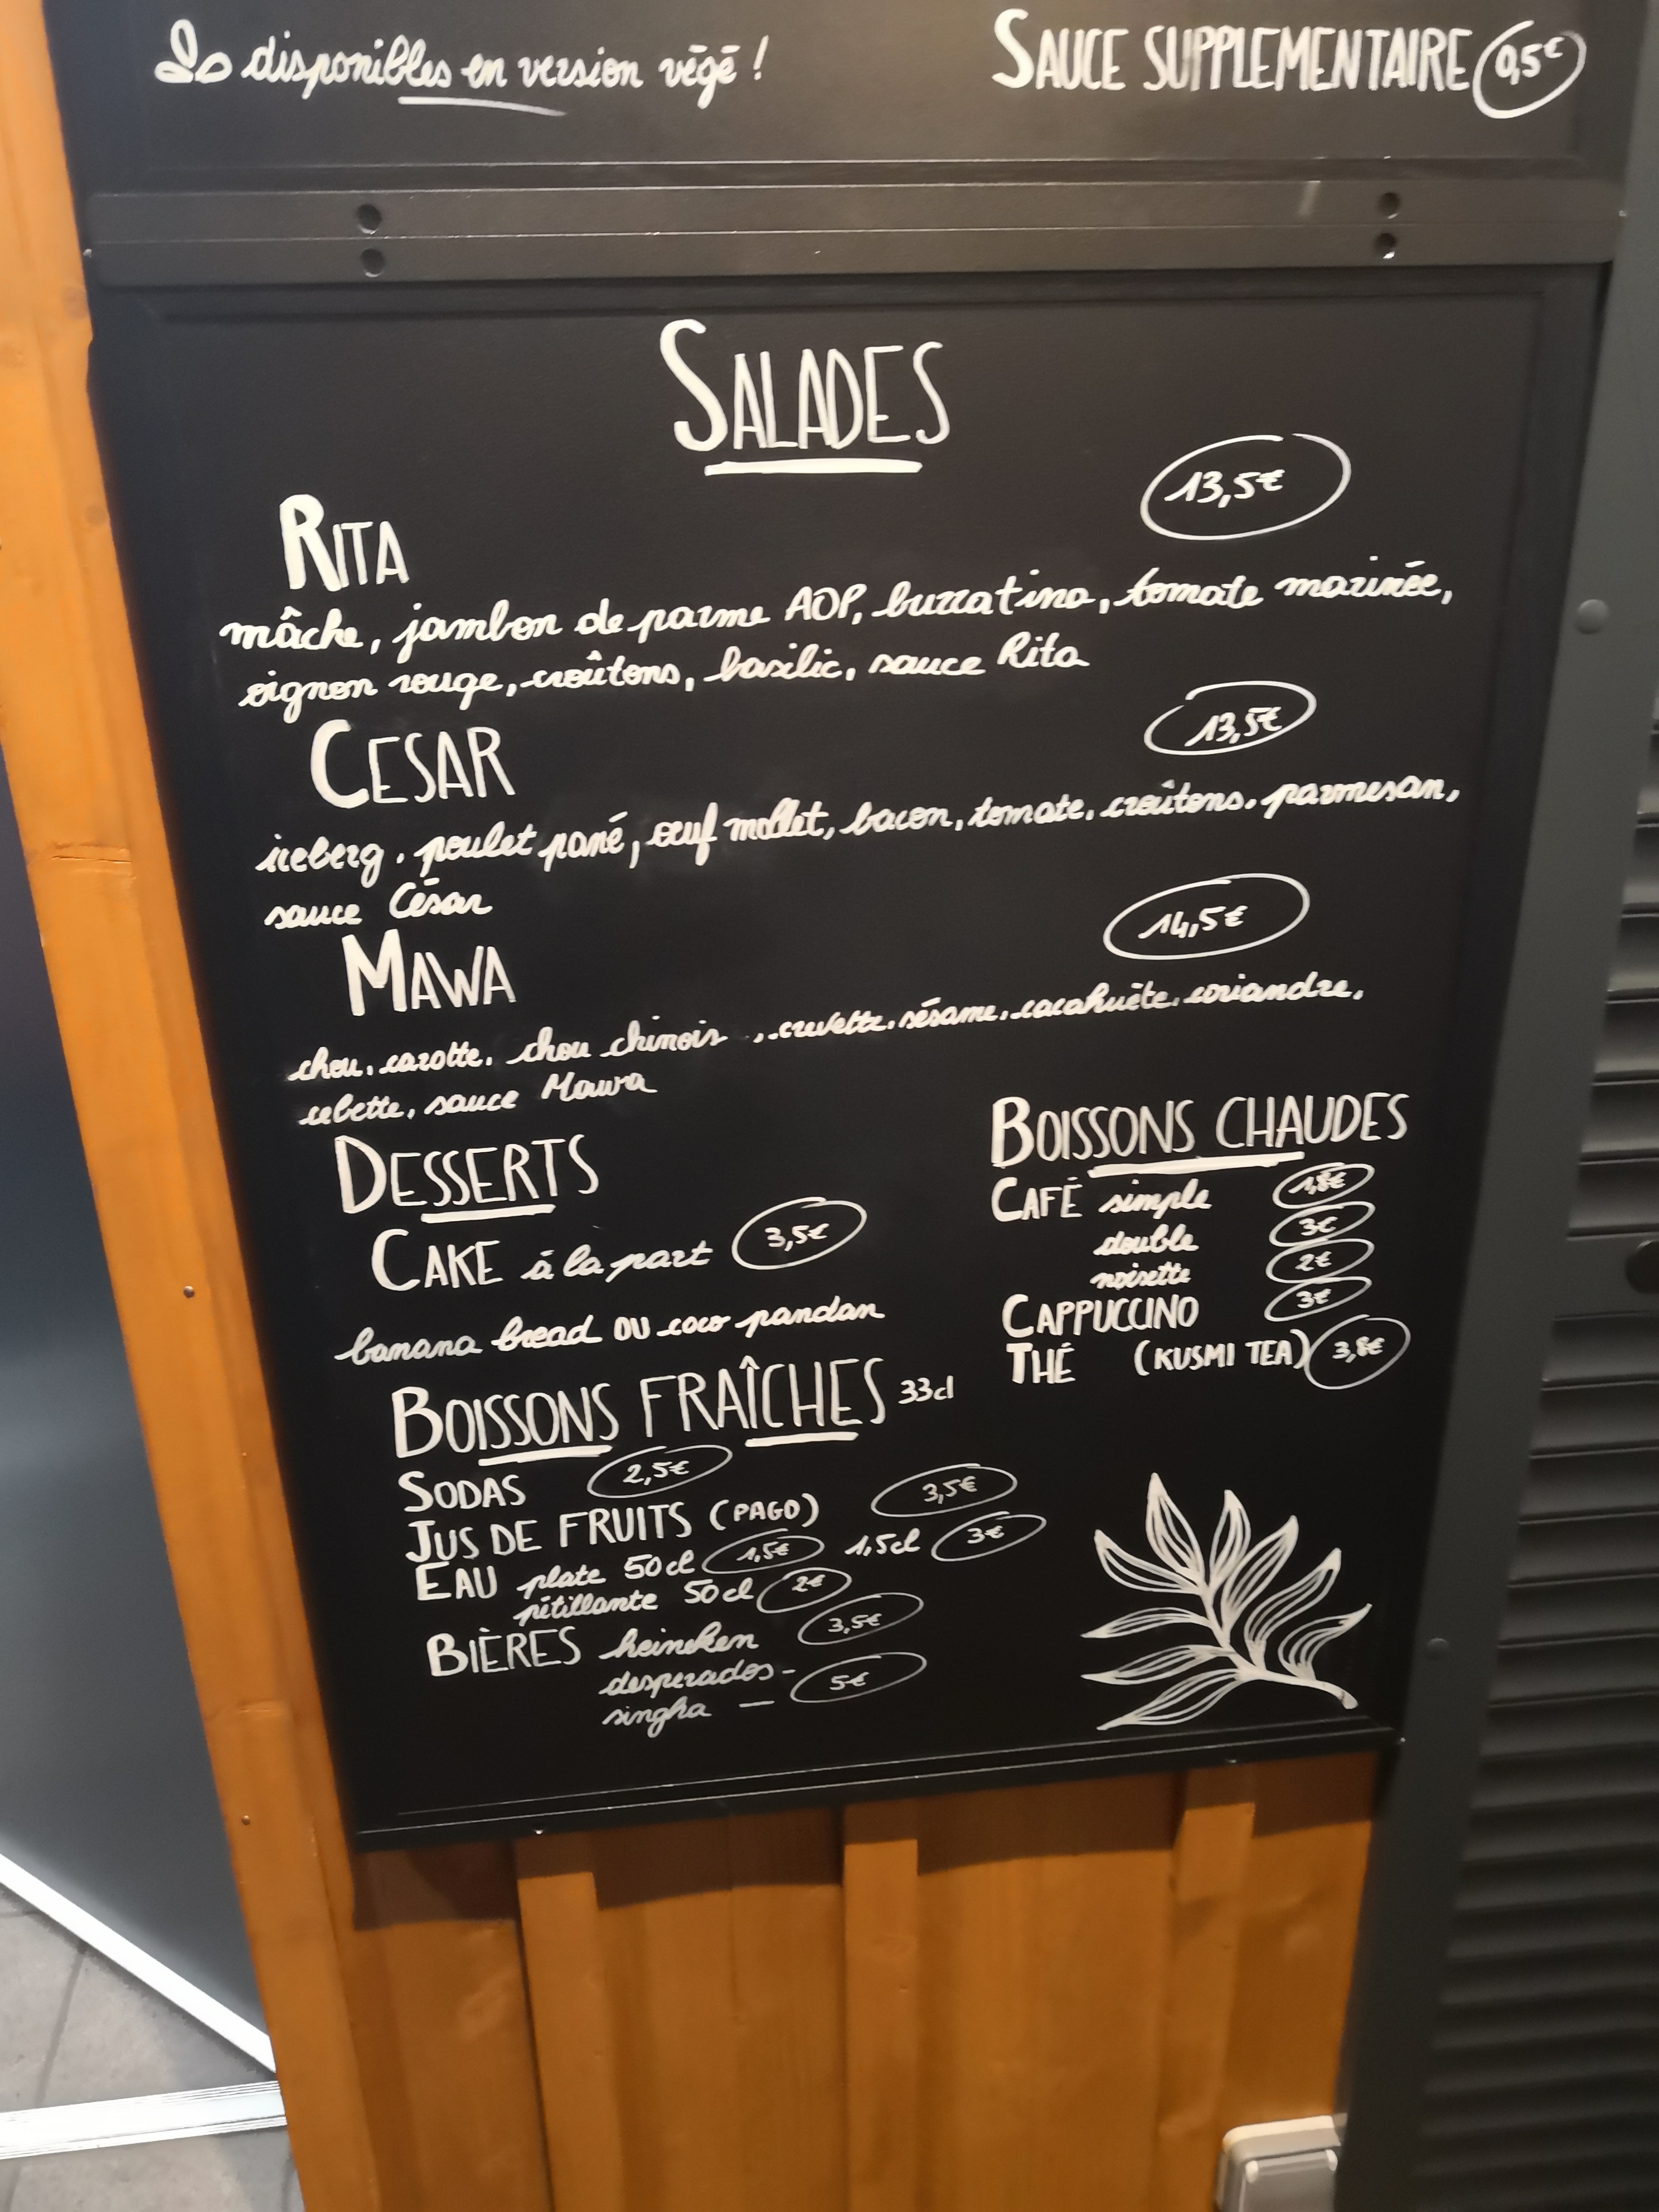 disponibles en version végé !
SAUCE SUPPLEMENTAIRE 0,5€
SALADES
RITA 13,5€
mâche, jambon de parme AOP, burratina, tomate marinée,
oignon rouge, croûtons, basilic, sauce Rita
CESAR 13,5€
iceberg, poulet pané, œuf mollet, bacon, tomate, croûtons, parmesan,
sauce César
MAWA 14,5€
chou, carotte, chou chinois , crevette, sésame, cacahuète, coriandre,
cebette, sauce Mawa
DESSERTS
CAKE à la part 3,5€
banana bread OU coco pandan
BOISSONS CHAUDES
CAFÉ simple 1,8€
double 3€
noisette 2€
CAPPUCCINO 3€
THÉ (KUSMI TEA) 3,8€
BOISSONS FRAÎCHES 33cl
SODAS 2,5€
JUS DE FRUITS (PAGO) 3,5€
EAU plate 50cl 1,5€ 1,5cl 3€
pétillante 50cl 2€
BIÈRES heineken 3,5€
desperados -
singha — 5€